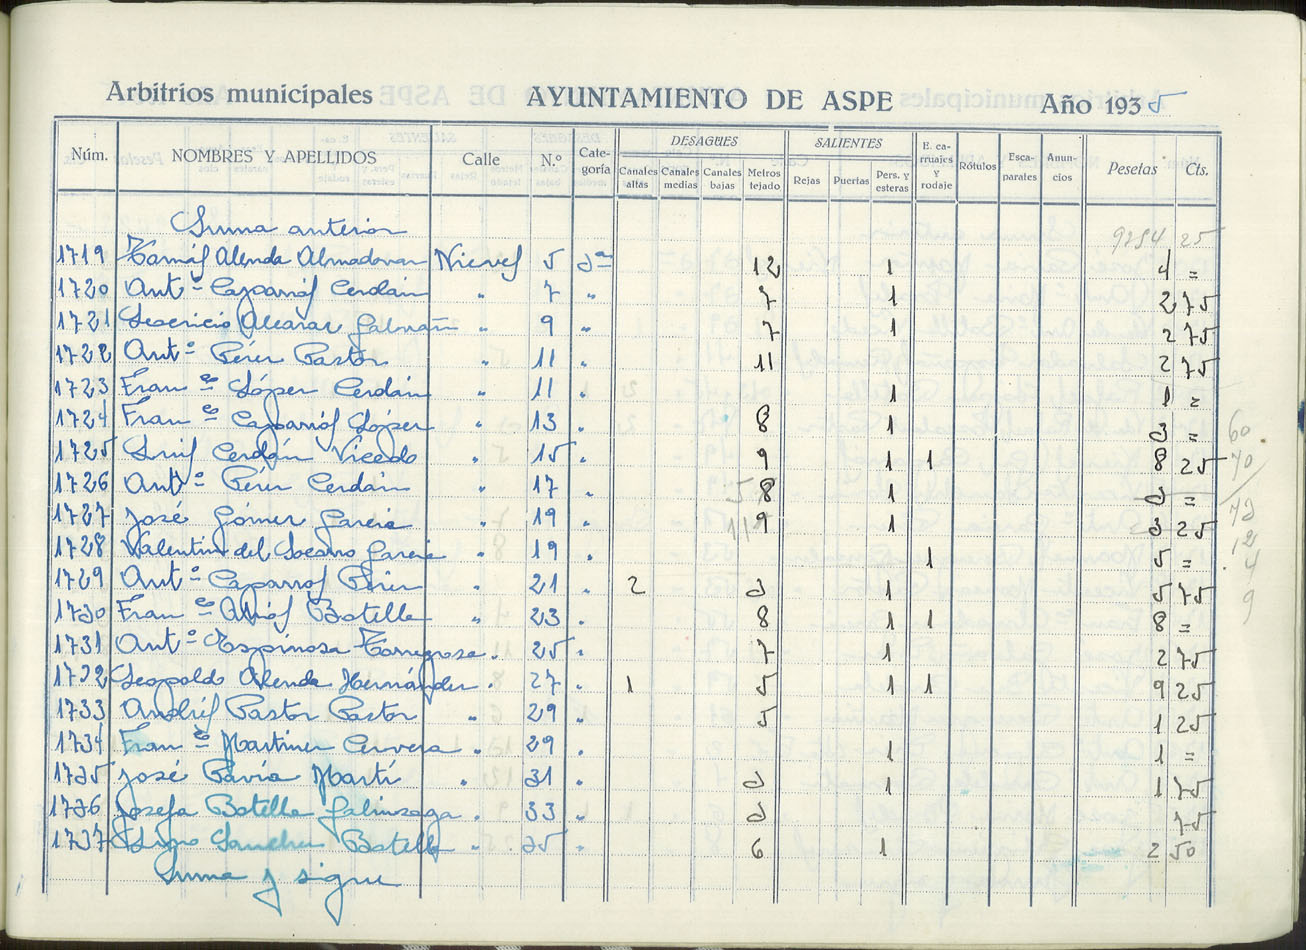 Arbitrios municipales AYUNTAMIENTO DE ASPE Año 1935
Núm. NOMBRES Y APELLIDOS Calle N.º Cate-goría DESAGÜES Canales altas Canales medias Canales bajas Metros tejado SALIENTES Rejas Puertas Pers. y esteras E. carruajes y rodaje Rótulos Esca-parates Anun-cios Pesetas Cts.
Suma anterior 9254 25
1719 Tomás Alenda Almodovar Nieves 5 3ª 12 1 4 =
1720 Antº Caparrós Cerdán " 7 " 7 1 2 75
1721 Alcaraz Galvañ " 9 " 7 1 2 75
1722 Antº Pérez Pastor " 11 " 11 2 75
1723 Franco López Cerdán " 11 " 1 1 =
1724 Franco Caparrós López " 13 " 8 1 3 =
1725 Luis Cerdán Vicedo " 15 " 9 1 1 8 25
1726 Antº Pérez Cerdán " 17 " 8 1 3 =
1727 José Gómez García " 19 " 9 1 3 25
1728 Valentín del Socorro García " 19 " 1 5 =
1729 Antº Caparrós Pérez " 21 " 2 3 1 5 75
1730 Franco Botella " 23 " 8 1 1 8 =
1731 Antº Espinosa Torregrosa " 25 " 7 1 2 75
1732 Leopoldo Alenda Hernández " 27 " 1 5 1 1 9 25
1733 Andrés Pastor Pastor " 29 " 5 1 25
1734 Franco Martínez Cervera " 29 " 1 1 =
1735 José Pavía Martí " 31 " 3 1 1 75
1736 Josefa Botella Galinzoga " 33 " 3 75
1737 Sánchez Botella " 35 " 6 1 2 50
Suma y sigue